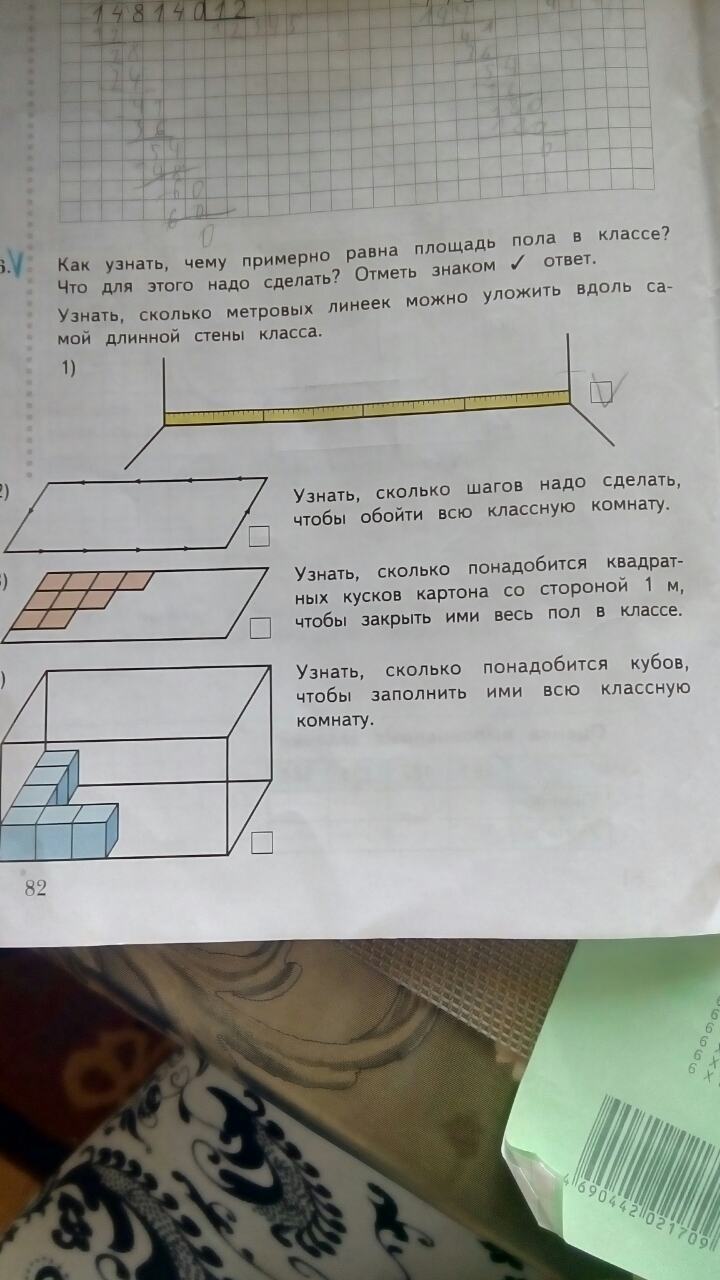 148140 12
12 12345
28
24
41
36
54
48
60
60
0
6.V
Как узнать, чему примерно равна площадь пола в классе?
Что для этого надо сделать? Отметь знаком ✓ ответ.
Узнать, сколько метровых линеек можно уложить вдоль са-
мой длинной стены класса.
1)
)
Узнать, сколько шагов надо сделать,
чтобы обойти всю классную комнату.
)
Узнать, сколько понадобится квадрат-
ных кусков картона со стороной 1 м,
чтобы закрыть ими весь пол в классе.
)
Узнать, сколько понадобится кубов,
чтобы заполнить ими всю классную
комнату.
82
6
6
6
6 x
6 x
6 x
4 690442 021709